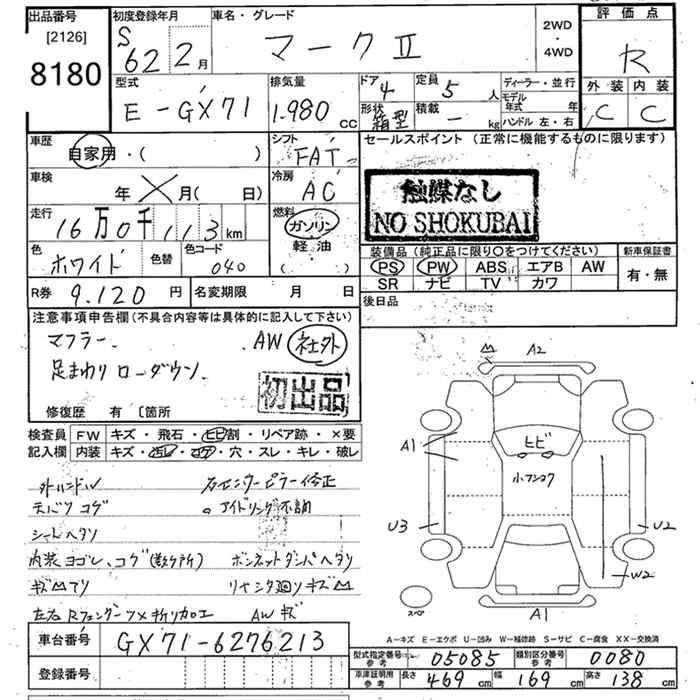 出品番号
[2126]
8180
初度登録年月
S 62 2月
車名・グレード
マークⅡ
2WD
・
4WD
評価点
R
外装 内装
C C
型式
E-GX71
排気量
1.980 cc
ドア 4
形状 箱型
定員 5 人
積載 - kg
ディーラー・並行
モデル年式 年
ハンドル 左・右
車歴
自家用・( )
シフト
FAT
車検
年 × 月( 日)
冷房
AC
走行
16万0千113km
燃料
ガソリン
軽・油
( )
色
ホワイト
色替
色コード
040
R券 9.120 円
名変期限 月 日
セールスポイント (正常に機能するものに限ります)
触媒なし
NO SHOKUBAI
装備品 (純正品に限り○をつけてください)
PS PW ABS エアB AW
SR ナビ TV カワ
新車保証書
有・無
後日品
注意事項申告欄 (不具合内容等は具体的に記入して下さい)
マフラー. AW 社外
足まわり ローダウン.
初出品
修復歴 有 〔箇所
検査員
記入欄
FW キズ・飛石・ヒビ割・リペア跡・×要
内装 キズ・汚レ・コゲ・穴・スレ・キレ・破レ
外ハンドル
天バリ コゲ
。アイドリング不調
シートヘタリ
内装ヨゴレ、コゲ(数ヶ所) ボンネットダンパヘタリ
AW キズ
A2
A1
ヒビ
U3
U2
W2
スペ
A1
A-キズ E-エクボ U-凹み W-補修跡 S-サビ C-腐食 XX-交換済
車台番号 GX71-6276213
登録番号
型式指定番号 参考 05085
類別区分番号 参考 0080
車庫証明用 参考 長さ 469 cm 幅 169 cm 高さ 138 cm